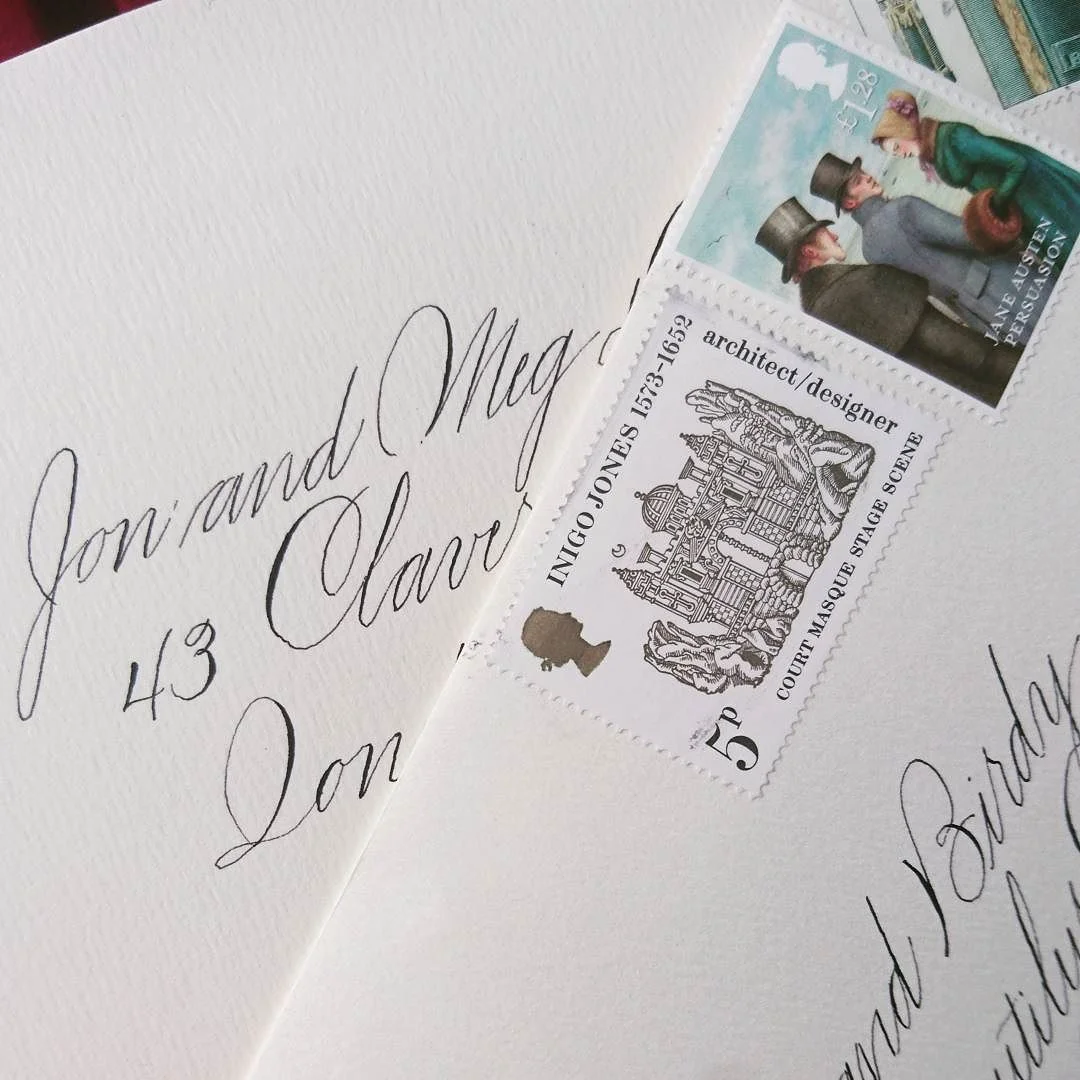 Jon and Meg
43 Claver
Lon
£1.28
JANE AUSTEN
PERSUASION
INIGO JONES 1573-1652
architect/designer
COURT MASQUE STAGE SCENE
5p
and Birdy